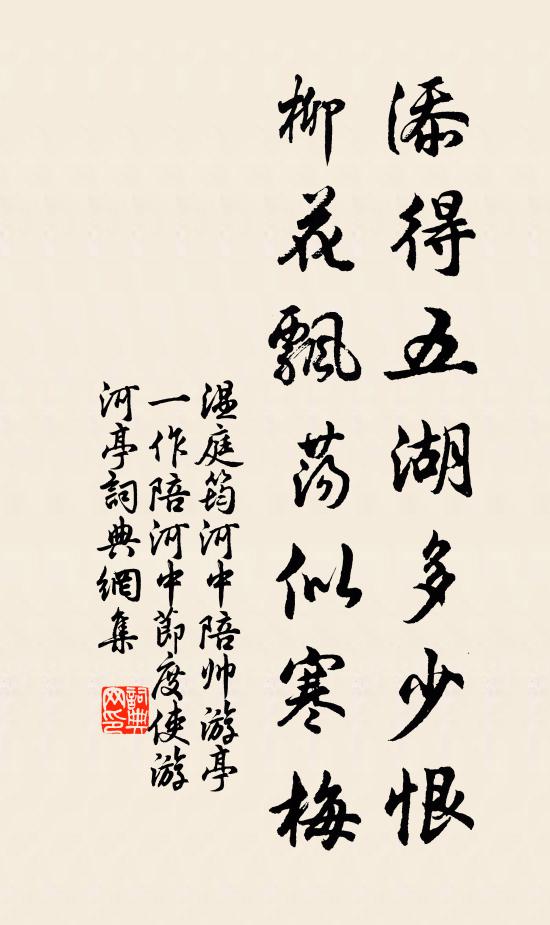 添得五湖多少恨
柳花飄蕩似寒梅
溫庭筠河中陪帅游亭
一作陪河中節度使游
河亭詞典網集
詞典
网印